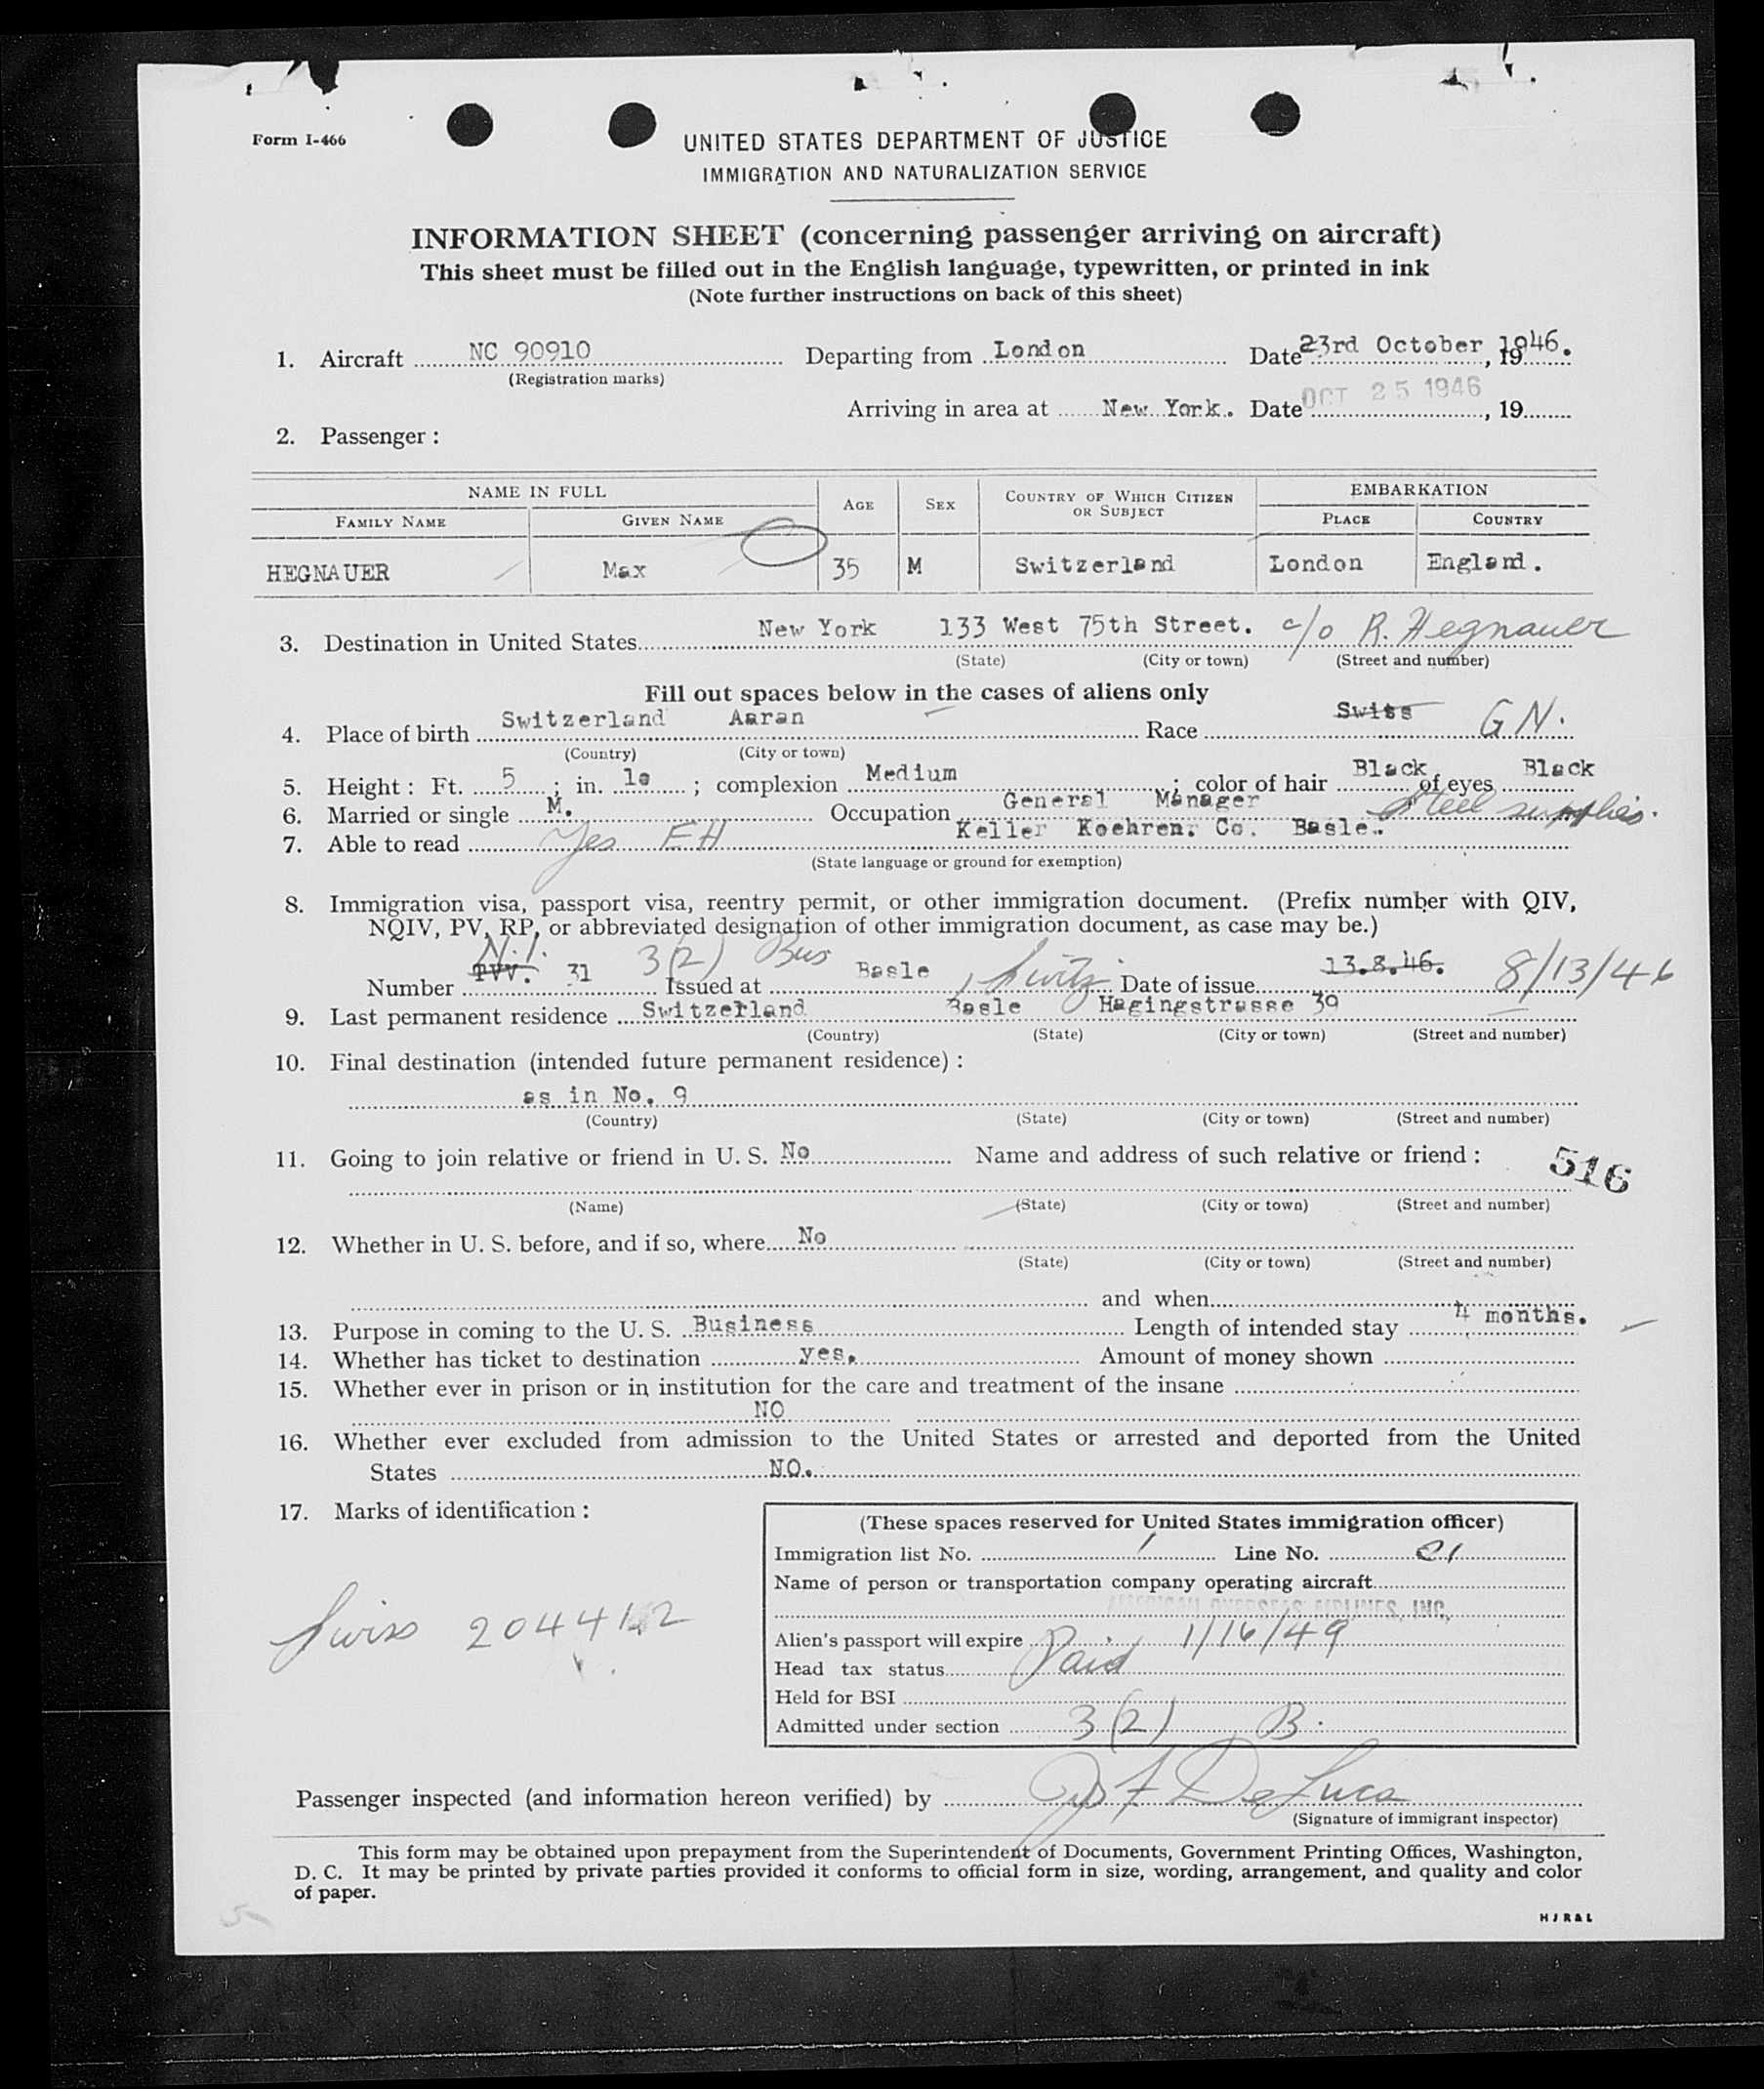 Form I-466
UNITED STATES DEPARTMENT OF JUSTICE
IMMIGRATION AND NATURALIZATION SERVICE
INFORMATION SHEET (concerning passenger arriving on aircraft)
This sheet must be filled out in the English language, typewritten, or printed in ink
(Note further instructions on back of this sheet)
1. Aircraft NC 90910 Departing from London Date 23rd October, 1946.
(Registration marks)
Arriving in area at New York. Date OCT 25 1946, 19
2. Passenger :
NAME IN FULL AGE SEX COUNTRY OF WHICH CITIZEN OR SUBJECT EMBARKATION
FAMILY NAME GIVEN NAME PLACE COUNTRY
HEGNAUER Max 35 M Switzerland London England.
3. Destination in United States New York 133 West 75th Street. c/o R. Hegnauer
(State) (City or town) (Street and number)
Fill out spaces below in the cases of aliens only
4. Place of birth Switzerland Aaran Race Swiss G N.
(Country) (City or town)
5. Height : Ft. 5 ; in. 10 ; complexion Medium ; color of hair Black of eyes Black
6. Married or single M. Occupation General Manager Steel supplies.
Keller Koehren. Co. Basle.
7. Able to read Yes
(State language or ground for exemption)
8. Immigration visa, passport visa, reentry permit, or other immigration document. (Prefix number with QIV,
NQIV, PV, RP, or abbreviated designation of other immigration document, as case may be.)
N.I. 3(2) Bus
Number PVV. 31 Issued at Basle, Switz. Date of issue 13.8.46. 8/13/46
9. Last permanent residence Switzerland Basle Hagingstrasse 39
(Country) (State) (City or town) (Street and number)
10. Final destination (intended future permanent residence) :
as in No. 9
(Country) (State) (City or town) (Street and number)
11. Going to join relative or friend in U. S. No Name and address of such relative or friend :
516
(Name) (State) (City or town) (Street and number)
12. Whether in U. S. before, and if so, where No
(State) (City or town) (Street and number)
and when
13. Purpose in coming to the U. S. Business Length of intended stay 4 months.
14. Whether has ticket to destination yes. Amount of money shown
15. Whether ever in prison or in institution for the care and treatment of the insane
NO
16. Whether ever excluded from admission to the United States or arrested and deported from the United
States NO.
17. Marks of identification :
(These spaces reserved for United States immigration officer)
Immigration list No. 1 Line No. 21
Name of person or transportation company operating aircraft
AMERICAN OVERSEAS AIRLINES, INC.
Alien's passport will expire 1/16/49
Head tax status Paid
Held for BSI
Admitted under section 3(2) B.
Swiss 204412
Passenger inspected (and information hereon verified) by F DeLuca
(Signature of immigrant inspector)
This form may be obtained upon prepayment from the Superintendent of Documents, Government Printing Offices, Washington,
D. C. It may be printed by private parties provided it conforms to official form in size, wording, arrangement, and quality and color
of paper.
H J R & L